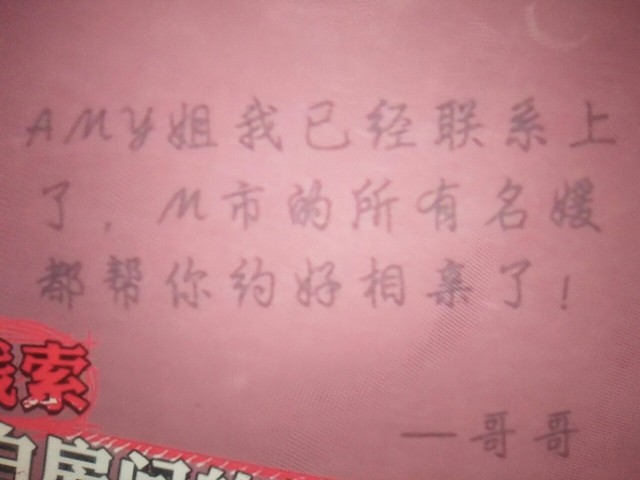 AMY姐我已经联系上
了，M市的所有名媛
都帮你约好相亲了！
线索
白房间的
——哥哥